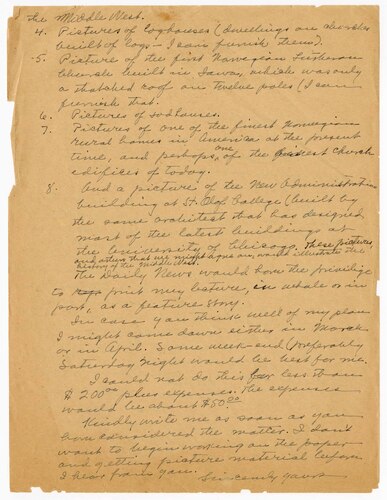 the Middle West.
4. Pictures of loghouses (dwellings or churches
built of logs - I can furnish them).
5. Picture of the first Norwegian Lutheran
church built in Iowa, which was only
a thatched roof on twelve poles (I can
furnish that.
6. Pictures of sodhouses.
7. Pictures of one of the finest Norwegian
rural homes in America at the present
time, and perhaps one of the finest church
edifices of today.
8. And a picture of the New Administration
building at St. Olaf College (built by
the same architect that has designed
most of the latest buildings at
the University of Chicago. These pictures,
and others that we might agree on, would illustrate the
history of the Middle West.
The Daily News would have the privilege
to print my lecture, in whole or in
part, as a feature story.
In case you think well of my plan
I might come down either in March
or in April. Some week-end (preferably
Saturday night would be best for me.
I could not do this for less than
$200.00 plus expenses. The expenses
would be about $50.00
Kindly write me as soon as you
have considered the matter. I don't
want to begin working on the paper
and getting picture material before
I hear from you.
Sincerely yours